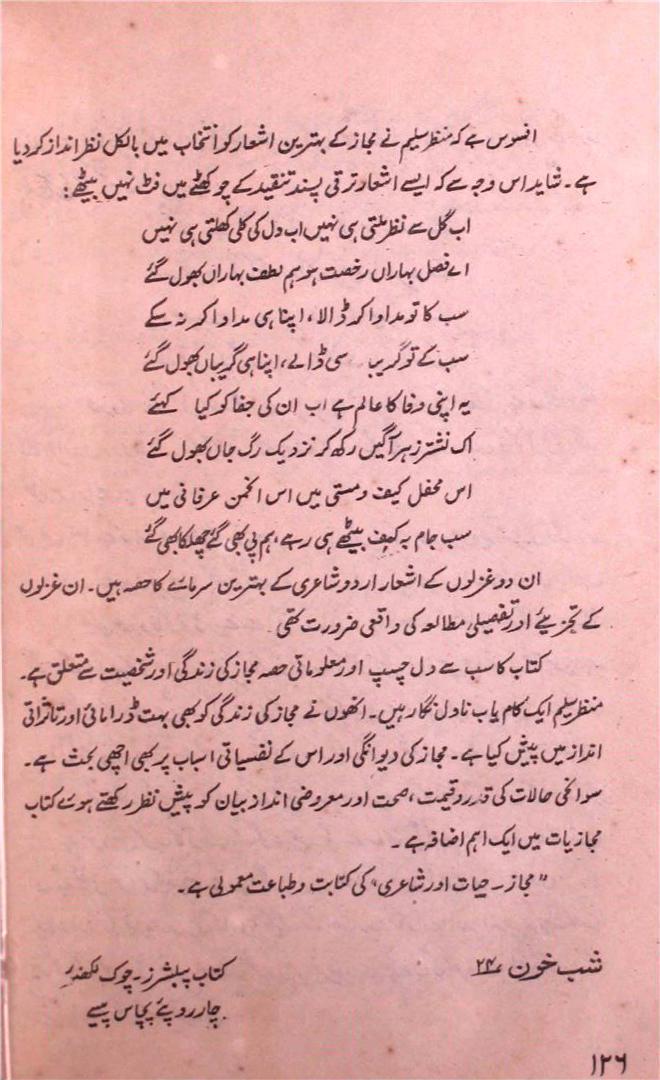 افسوس ہے کہ منظر سلیم نے مجاز کے بہترین اشعار کو انتخاب میں بالکل نظر انداز کر دیا
ہے۔ شاید اس وجہ سے کہ ایسے اشعار ترقی پسند تنقید کے چوکھٹے میں فٹ نہیں بیٹھے:
اب گل سے نظر ملتی ہی نہیں اب دل کی کلی کھلتی ہی نہیں
اے فصل بہاراں رخصت ہو ہم لطف بہاراں بھول گئے
سب کا تو مداوا کر ڈالا، اپنا ہی مداوا کر نہ سکے
سب کے تو گریب سی ڈالے، اپنا ہی گریباں بھول گئے
یہ اپنی وفا کا عالم ہے اب ان کی جفا کو کیا کہئے
اک نشتر زہر آگیں رکھ کر نزدیک رگ جاں بھول گئے
اس محفل کیف و مستی میں اس انجمن عرفانی میں
سب جام بہ کیف بیٹھے ہی رہے، ہم پی بھی گئے چھلکا بھی گئے
ان دو غزلوں کے اشعار اردو شاعری کے بہترین سرمائے کا حصہ ہیں۔ ان غزلوں
کے تجزیئے اور تفصیلی مطالعہ کی واقعی ضرورت تھی۔
کتاب کا سب سے دل چسپ اور معلوماتی حصہ مجاز کی زندگی اور شخصیت سے متعلق ہے۔
منظر سلیم ایک کام یاب ناول نگار ہیں۔ انھوں نے مجاز کی زندگی کو بھی بہت ڈرامائی اور تاثراتی
انداز میں پیش کیا ہے۔ مجاز کی دیوانگی اور اس کے نفسیاتی اسباب پر بھی اچھی بحث ہے۔
سوانحی حالات کی قدر و قیمت، صحت اور معروضی انداز بیان کو پیش نظر رکھتے ہوئے کتاب
مجازیات میں ایک اہم اضافہ ہے۔
"مجاز۔ حیات اور شاعری" کی کتابت و طباعت معمولی ہے۔
شب خون ۲۴؍
کتاب پبلشرز۔ چوک لکھنؤ
چار روپئے پچاس پیسے
۱۲۶